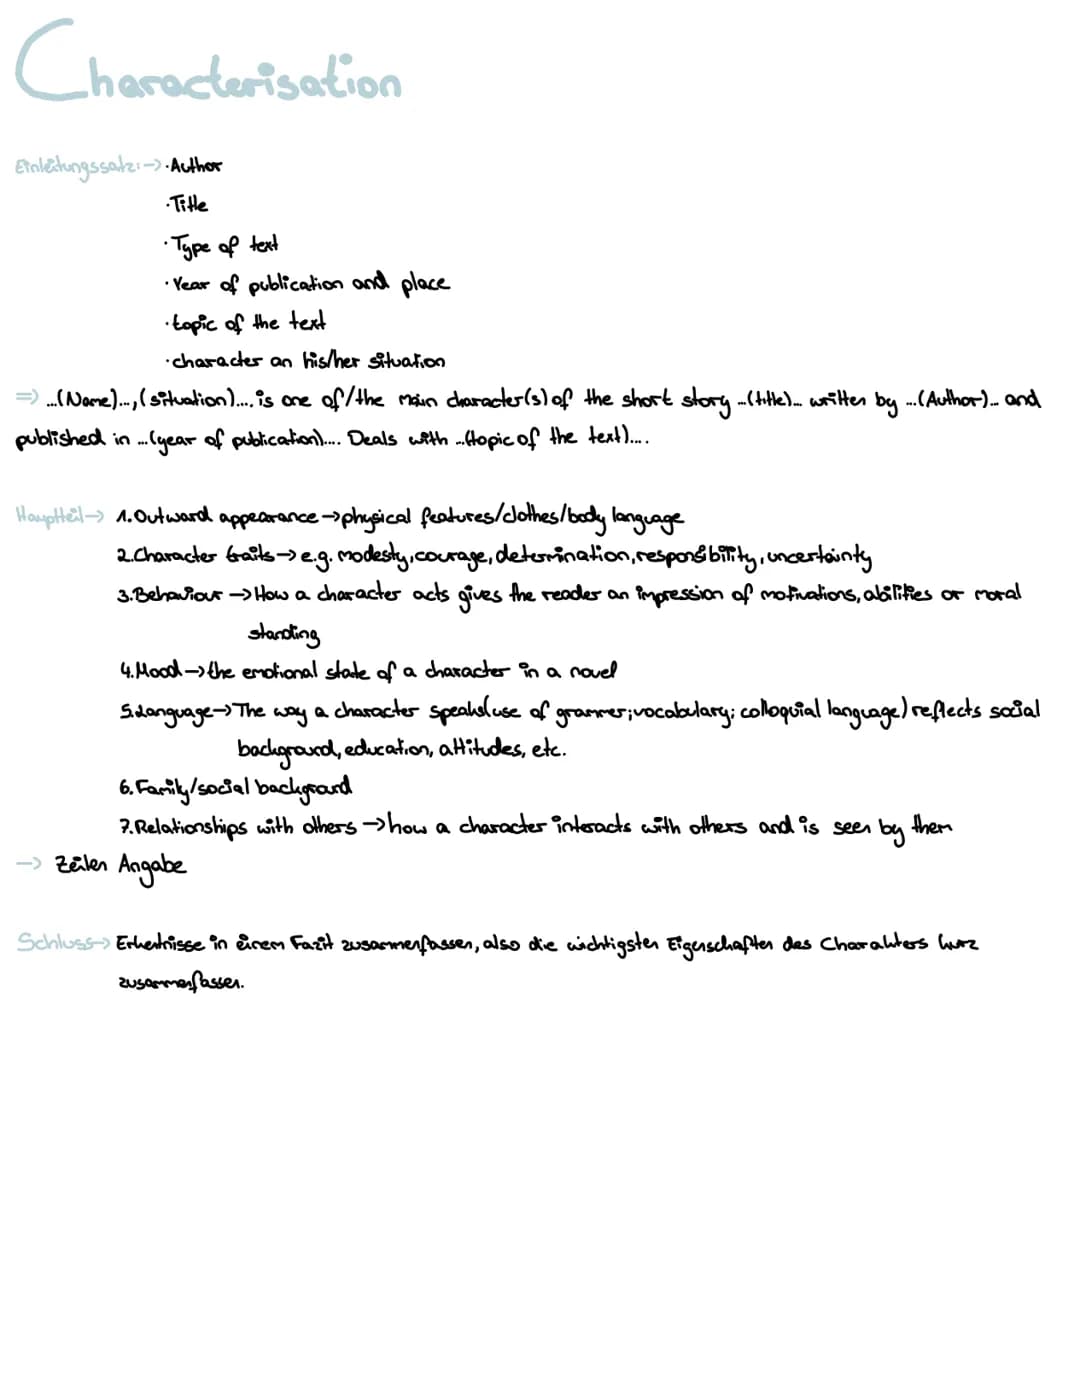 Characterisation
Einleitungssatz: -> ·Author
·Title
·Type of text
·Year of publication and place
·topic of the text
·character an his/her situation
=> ...(Name)..., (situation).... is one of/the main character(s) of the short story ...(title)... written by ...(Author)... and
published in ...(year of publication).... Deals with ...(topic of the text)....
Hauptteil -> 1. Outward appearance -> physical features/clothes/body language
2. Character traits -> e.g. modesty, courage, determination, responsibility, uncertainty
3. Behaviour -> How a character acts gives the reader an impression of motivations, abilities or moral
standing
4. Mood -> the emotional state of a character in a novel
5. Language -> The way a character speaks (use of grammer; vocabulary; colloquial language) reflects social
background, education, attitudes, etc.
6. Family/social background
7. Relationships with others -> how a character interacts with others and is seen by them
-> Zeilen Angabe
Schluss -> Erkentnisse in einem Fazit zusammenfassen, also die wichtigsten Eigenschaften des Charakters kurz
zusammenfassen.